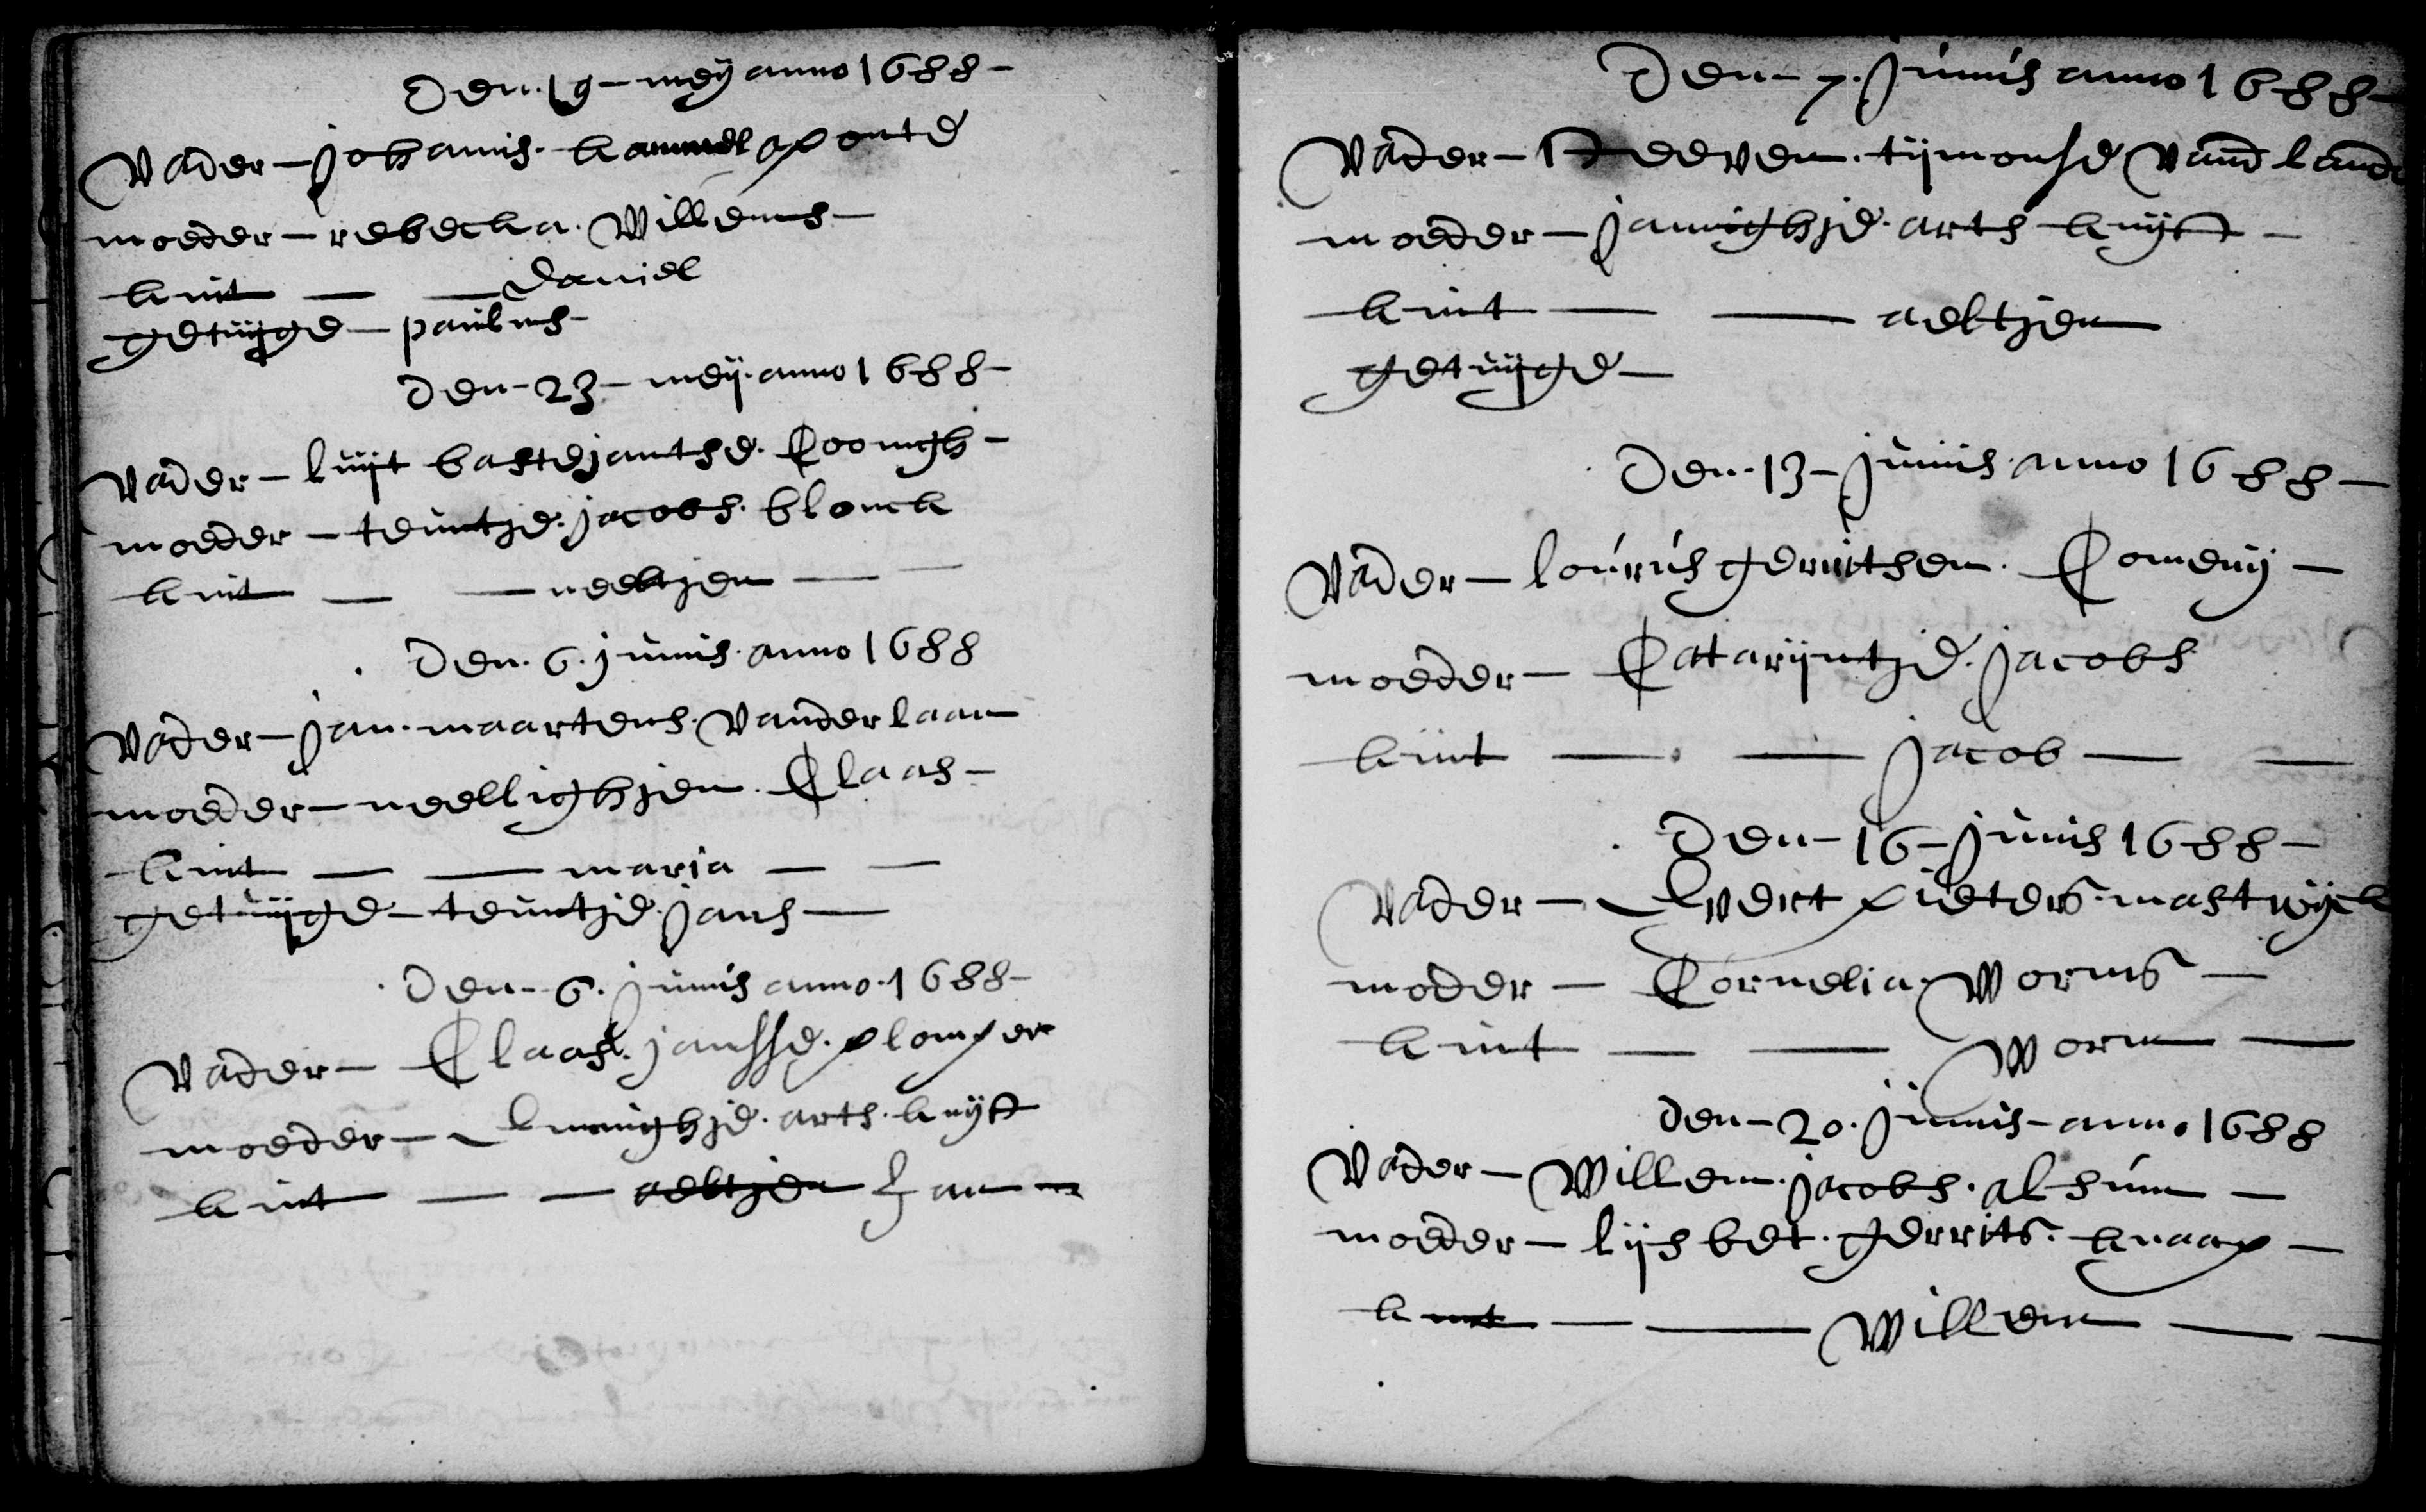 Den. 19 - meij anno 1688 -
Vader - Johannis. kammelaponte
moeder - rebecka. Willems -
kint — — Daniel
getuijge - paulus -
Den - 23 - meij. anno 1688 -
Vader - luijt bastejantse. Coonigh -
moeder - teuntje. jacobs. blonck
kint — — neeltjen — —
Den. 6. junius. anno 1688
Vader - Jan. maartens. Vander laan
moeder - neellighjen. Claas -
kint — — maria — —
getuijge - teuntje. Jans —
Den - 6. Junius anno. 1688 -
Vader - Claas. janssse. plomper
moeder - Emmighje. arts. knijft
kint — — aeltjen Jan
Den - 7. Junius anno 1688 -
Vader - Steeven. tijmonse Vand lande
moeder - Jannighje. arts knijft -
kint — — aeltjen
getuijge —
Den - 13 - Junius. anno 1688 -
Vader - lourus gerritsen. Comenij -
moeder - Catarijntje. Jacobs
kint — — Jacob — —
Den - 16 - Junius 1688 -
Vader - Evert pieters. mastwijck
moder - Cornelia. Worms —
kint — — Worm —
den - 20. Junius - anno 1688
Vader - Willem. jacobs. alsum -
moeder - lijsbet. gerrits. knaap -
kint — — Willem — —